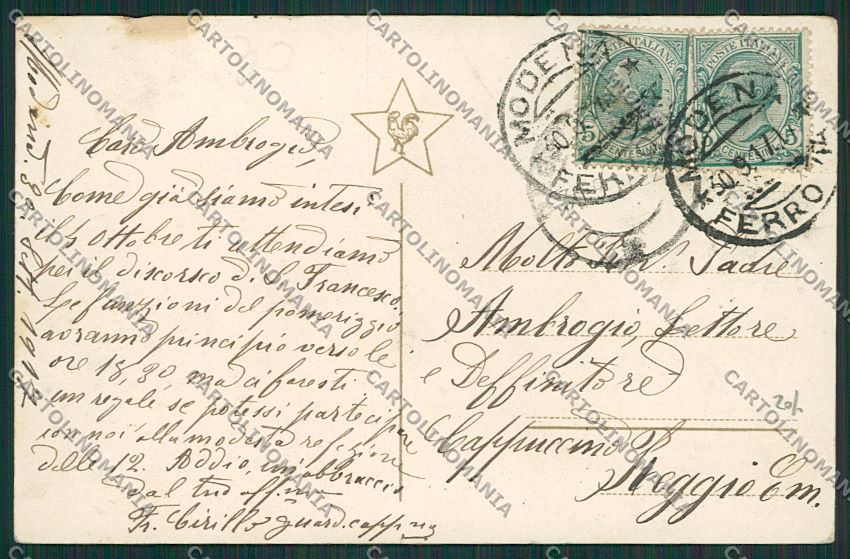 Modena 30 Sett. 1917
Caro Ambrogio,
Come già siamo intesi
il 4 Ottobre ti attendiamo
per il discorso di S. Francesco.
Le funzioni del pomeriggio
avranno principio verso le
ore 18,30, ma ci faresti
un regalo se potessi partecipare
con noi alla modesta refezione
delle 12. Addio, un abbraccio
dal tuo aff.mo
Fr. Cirillo guard. capp.no
POSTE ITALIANE
POSTE ITALIANE
CENTESIMI 5
CENTESIMI 5
MODENA
FERROVIA
MODENA
30.9.17
FERROVIA
Molto Rev. Padre
Ambrogio, Lettore
e Deffinitore
Cappuccino
Reggio Em.
CARTOLINOMANIA